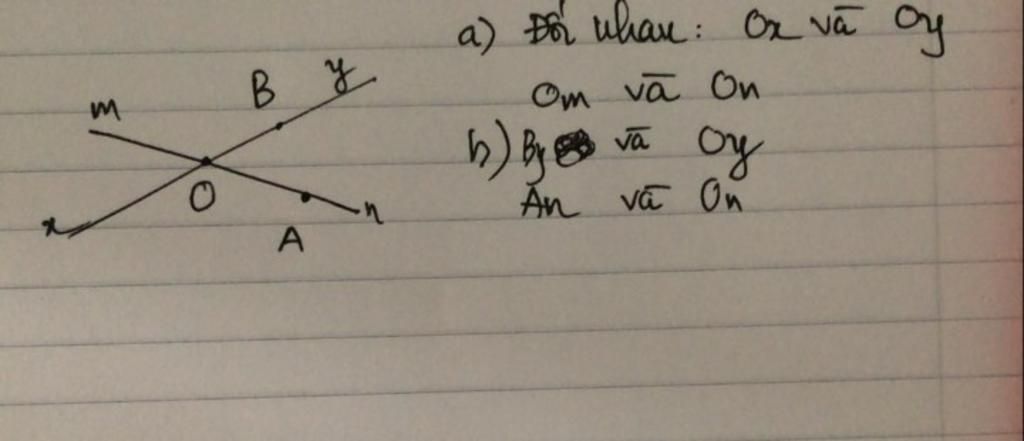 a) Đối nhau: Ox và Oy
Om và On
b) By và Oy
An và On
m
B
y
O
x
n
A